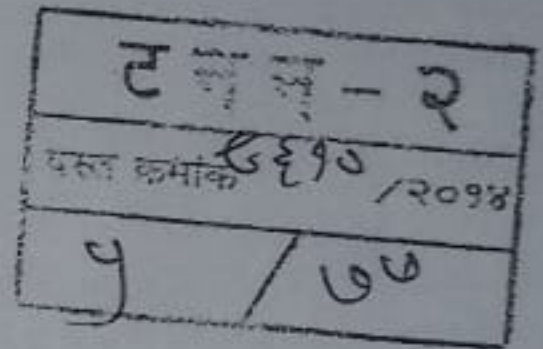 ट न न - २
दस्त क्रमांक ८६१० /२०१४
५ / ७७